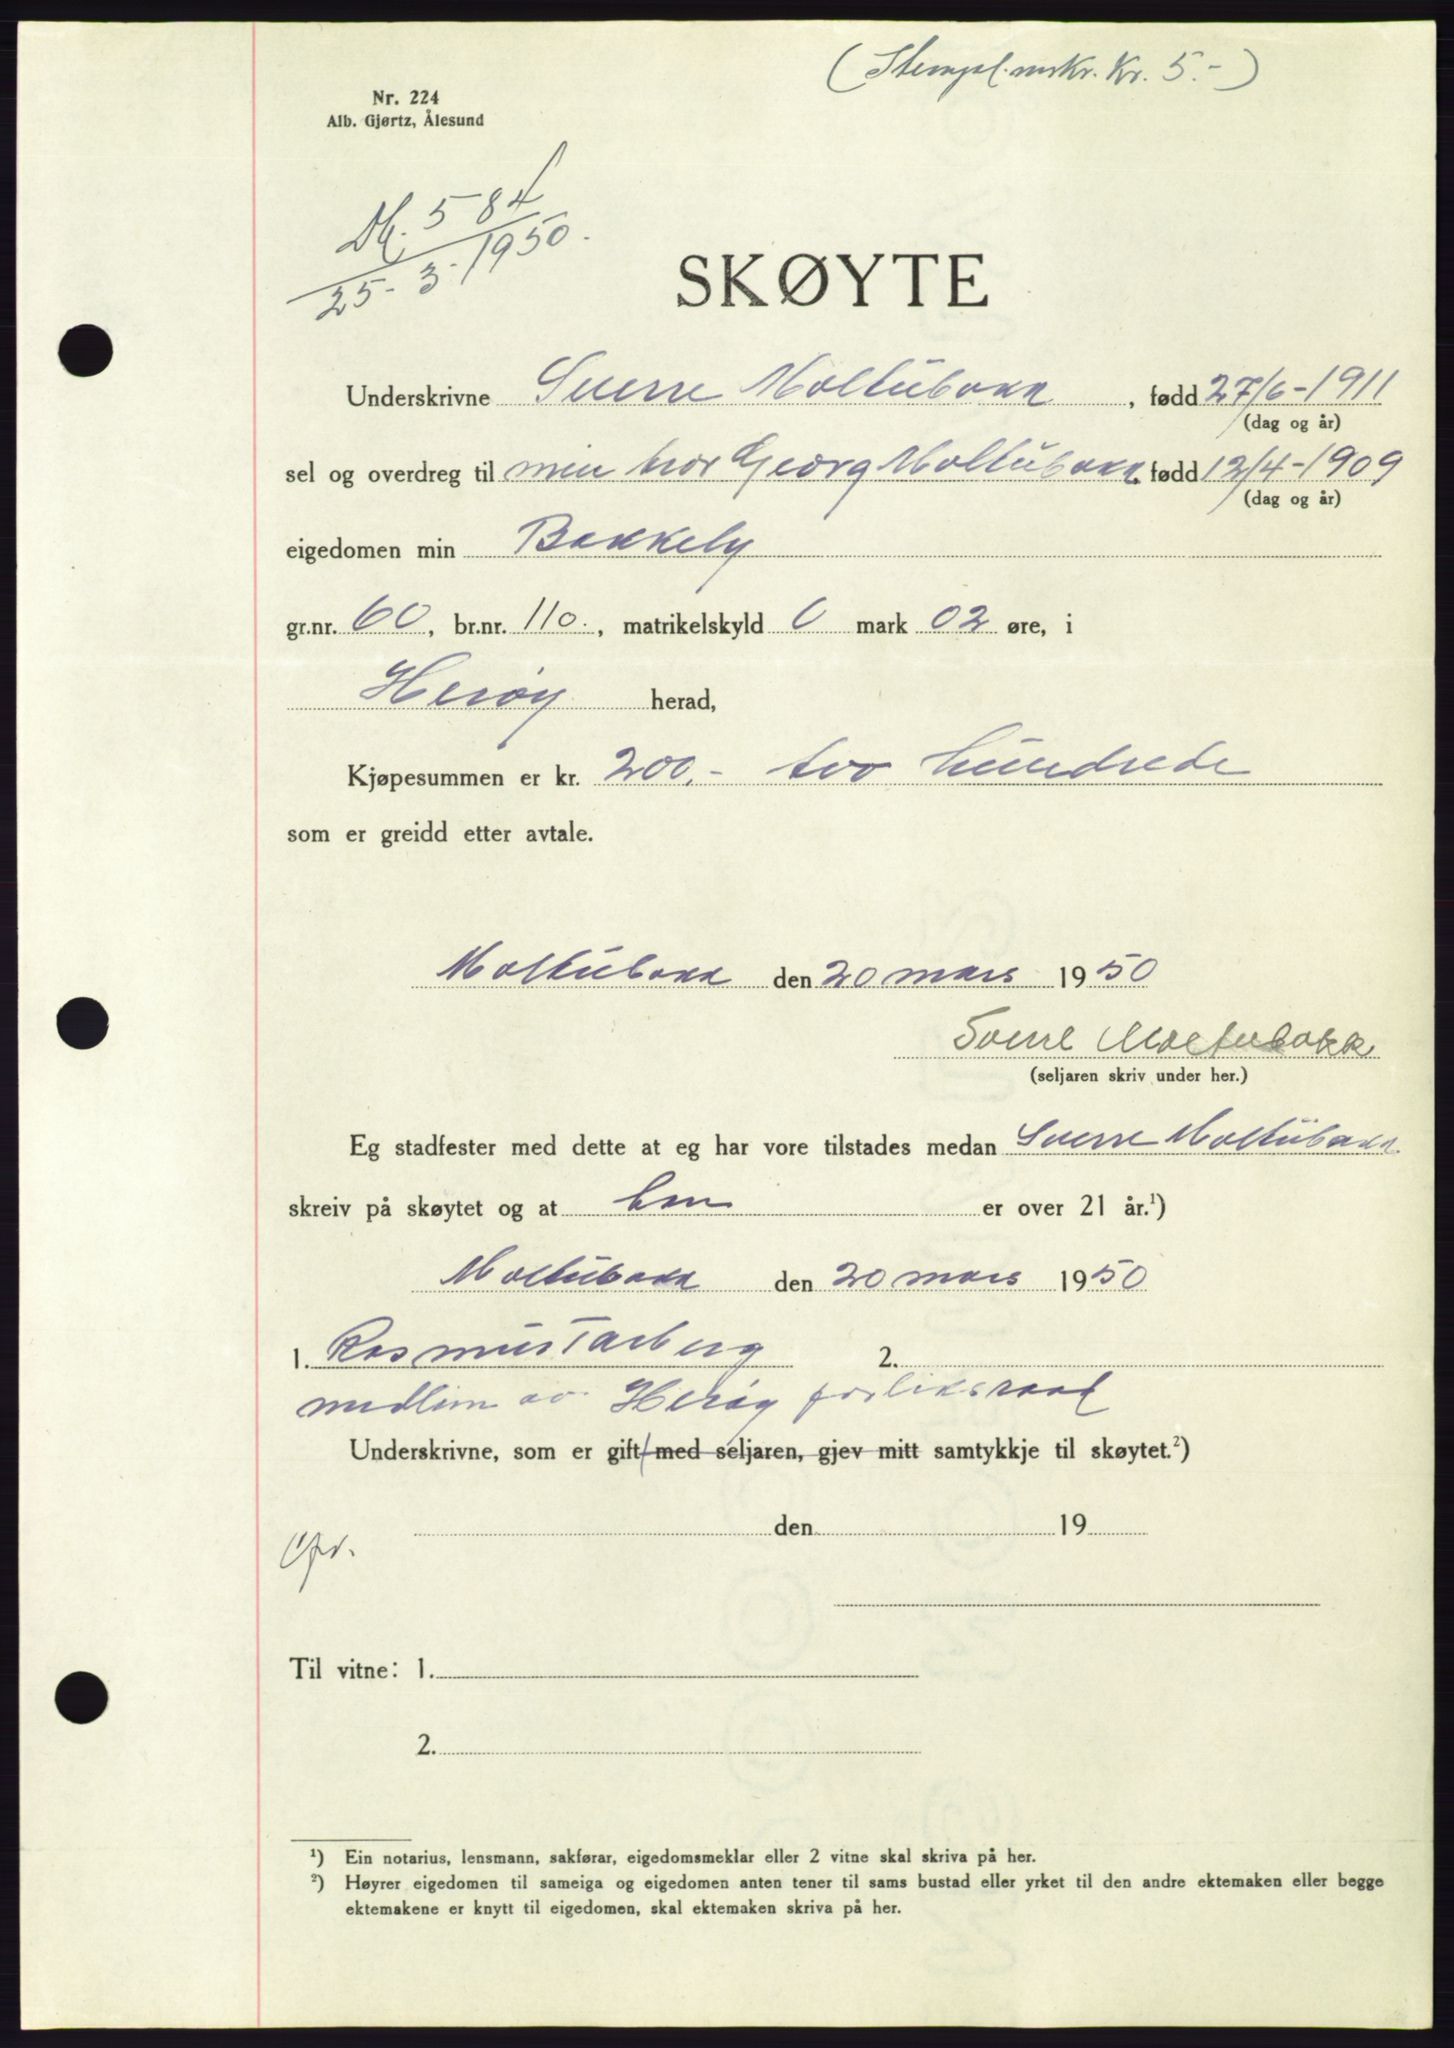 (Stempl.mrk. Kr. 5.-)
Nr. 224
Alb. Gjørtz, Ålesund
Db. 584
25-3-1950.
SKØYTE
Underskrivne Sverre Moltubakk, fødd 27/6-1911
(dag og år)
sel og overdreg til min bror Georg Moltubakk fødd 12/4-1909
(dag og år)
eigedomen min Bakkely
gr.nr. 60, br.nr. 110., matrikelskyld 0 mark 02 øre, i
Herøy herad,
Kjøpesummen er kr. 200.- tvo hundrede
som er greidd etter avtale.
Moltubakk den 20 mars 1950
Sverre Moltubakk
(seljaren skriv under her.)
Eg stadfester med dette at eg har vore tilstades medan Sverre Moltubakk
skreiv på skøytet og at han er over 21 år.¹)
Moltubakk den 20 mars 1950
1. Rasmus Tarberg 2.
medlem av Herøy forliksraad
Underskrivne, som er gift med seljaren, gjev mitt samtykkje til skøytet.²)
den 19
Til vitne: 1.
2.
¹) Ein notarius, lensmann, sakførar, eigedomsmeklar eller 2 vitne skal skriva på her.
²) Høyrer eigedomen til sameiga og eigedomen anten tener til sams bustad eller yrket til den andre ektemaken eller begge
ektemakene er knytt til eigedomen, skal ektemaken skriva på her.